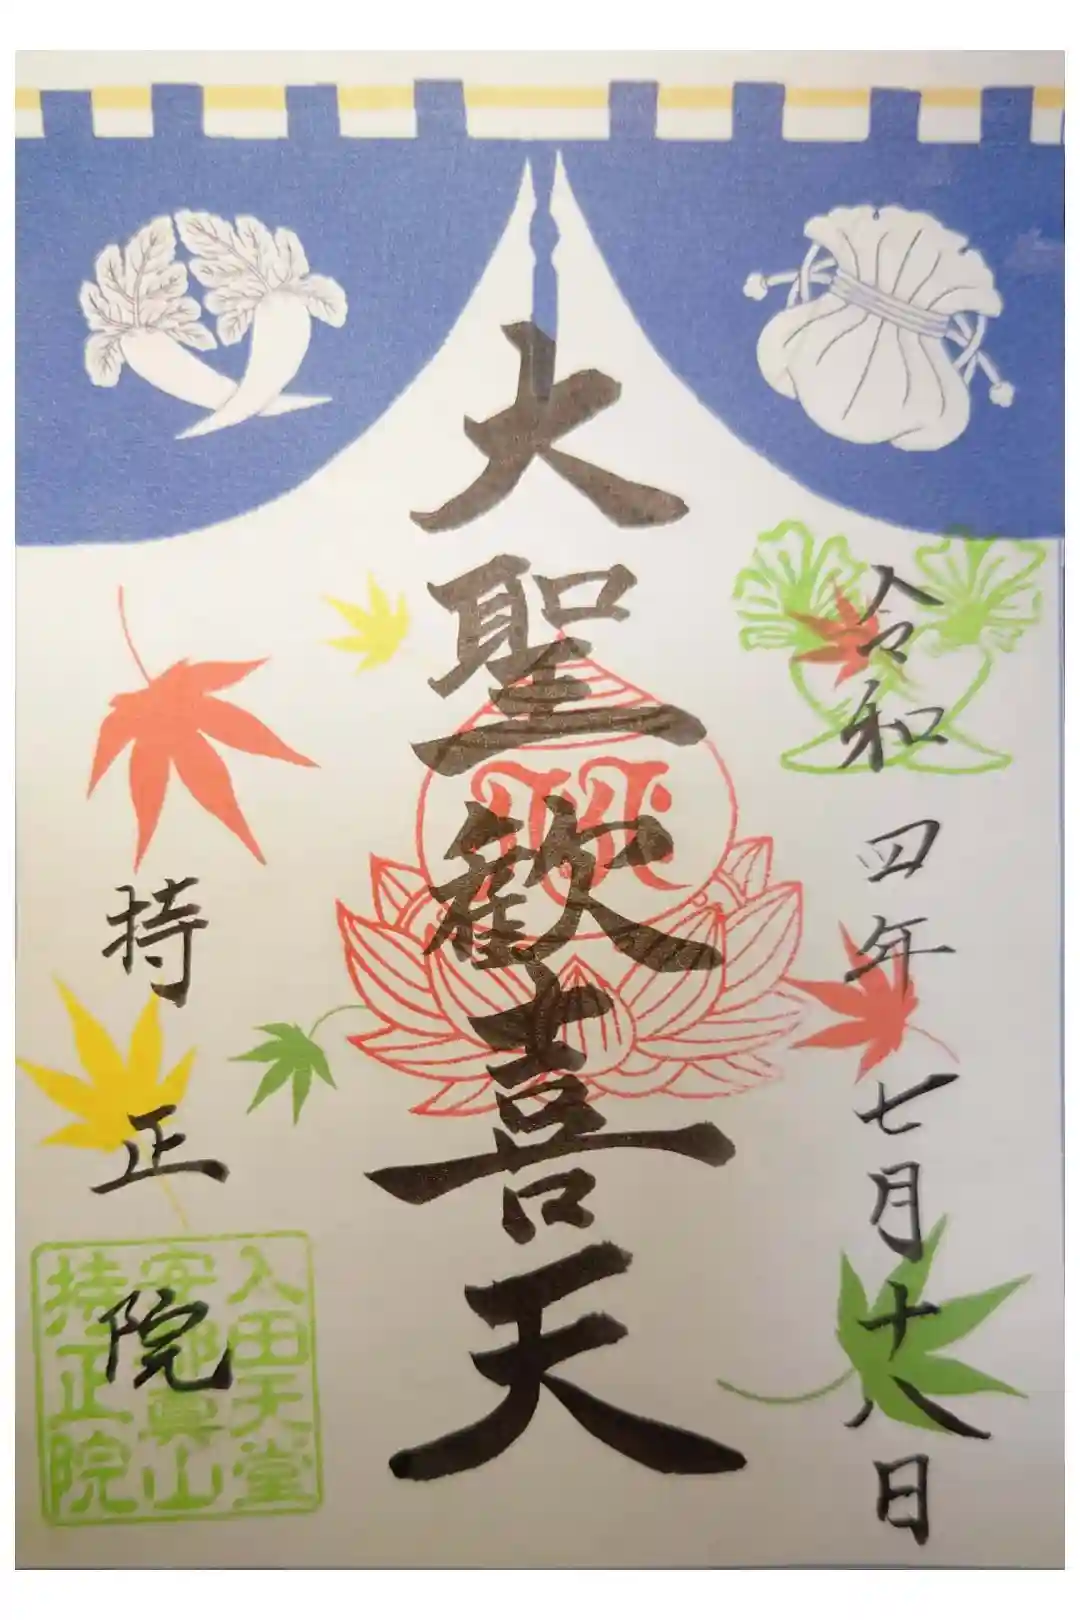 令和四年七月十八日
大聖歓喜天
持正院
入田天堂
安都真山
持正院